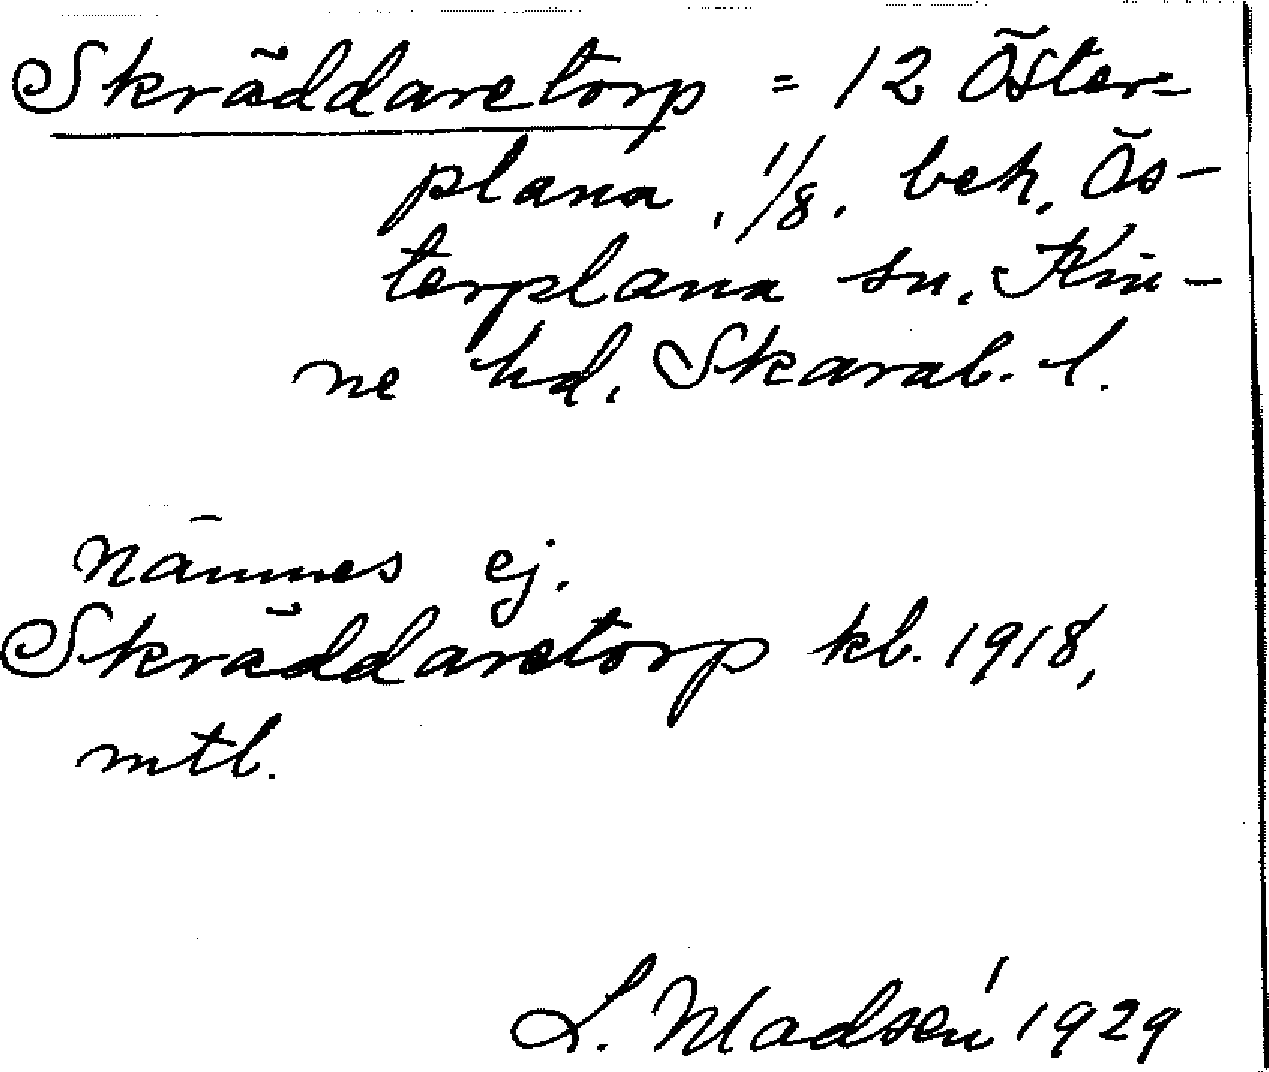 Skräddaretorp = 12 Öster-
plana, 1/8. beh. Ös-
terplana sn. Kin-
ne hd. Skarab. l.
nämnes ej.
Skräddaretorp kb. 1918,
mtl.
L. Madsén 1929